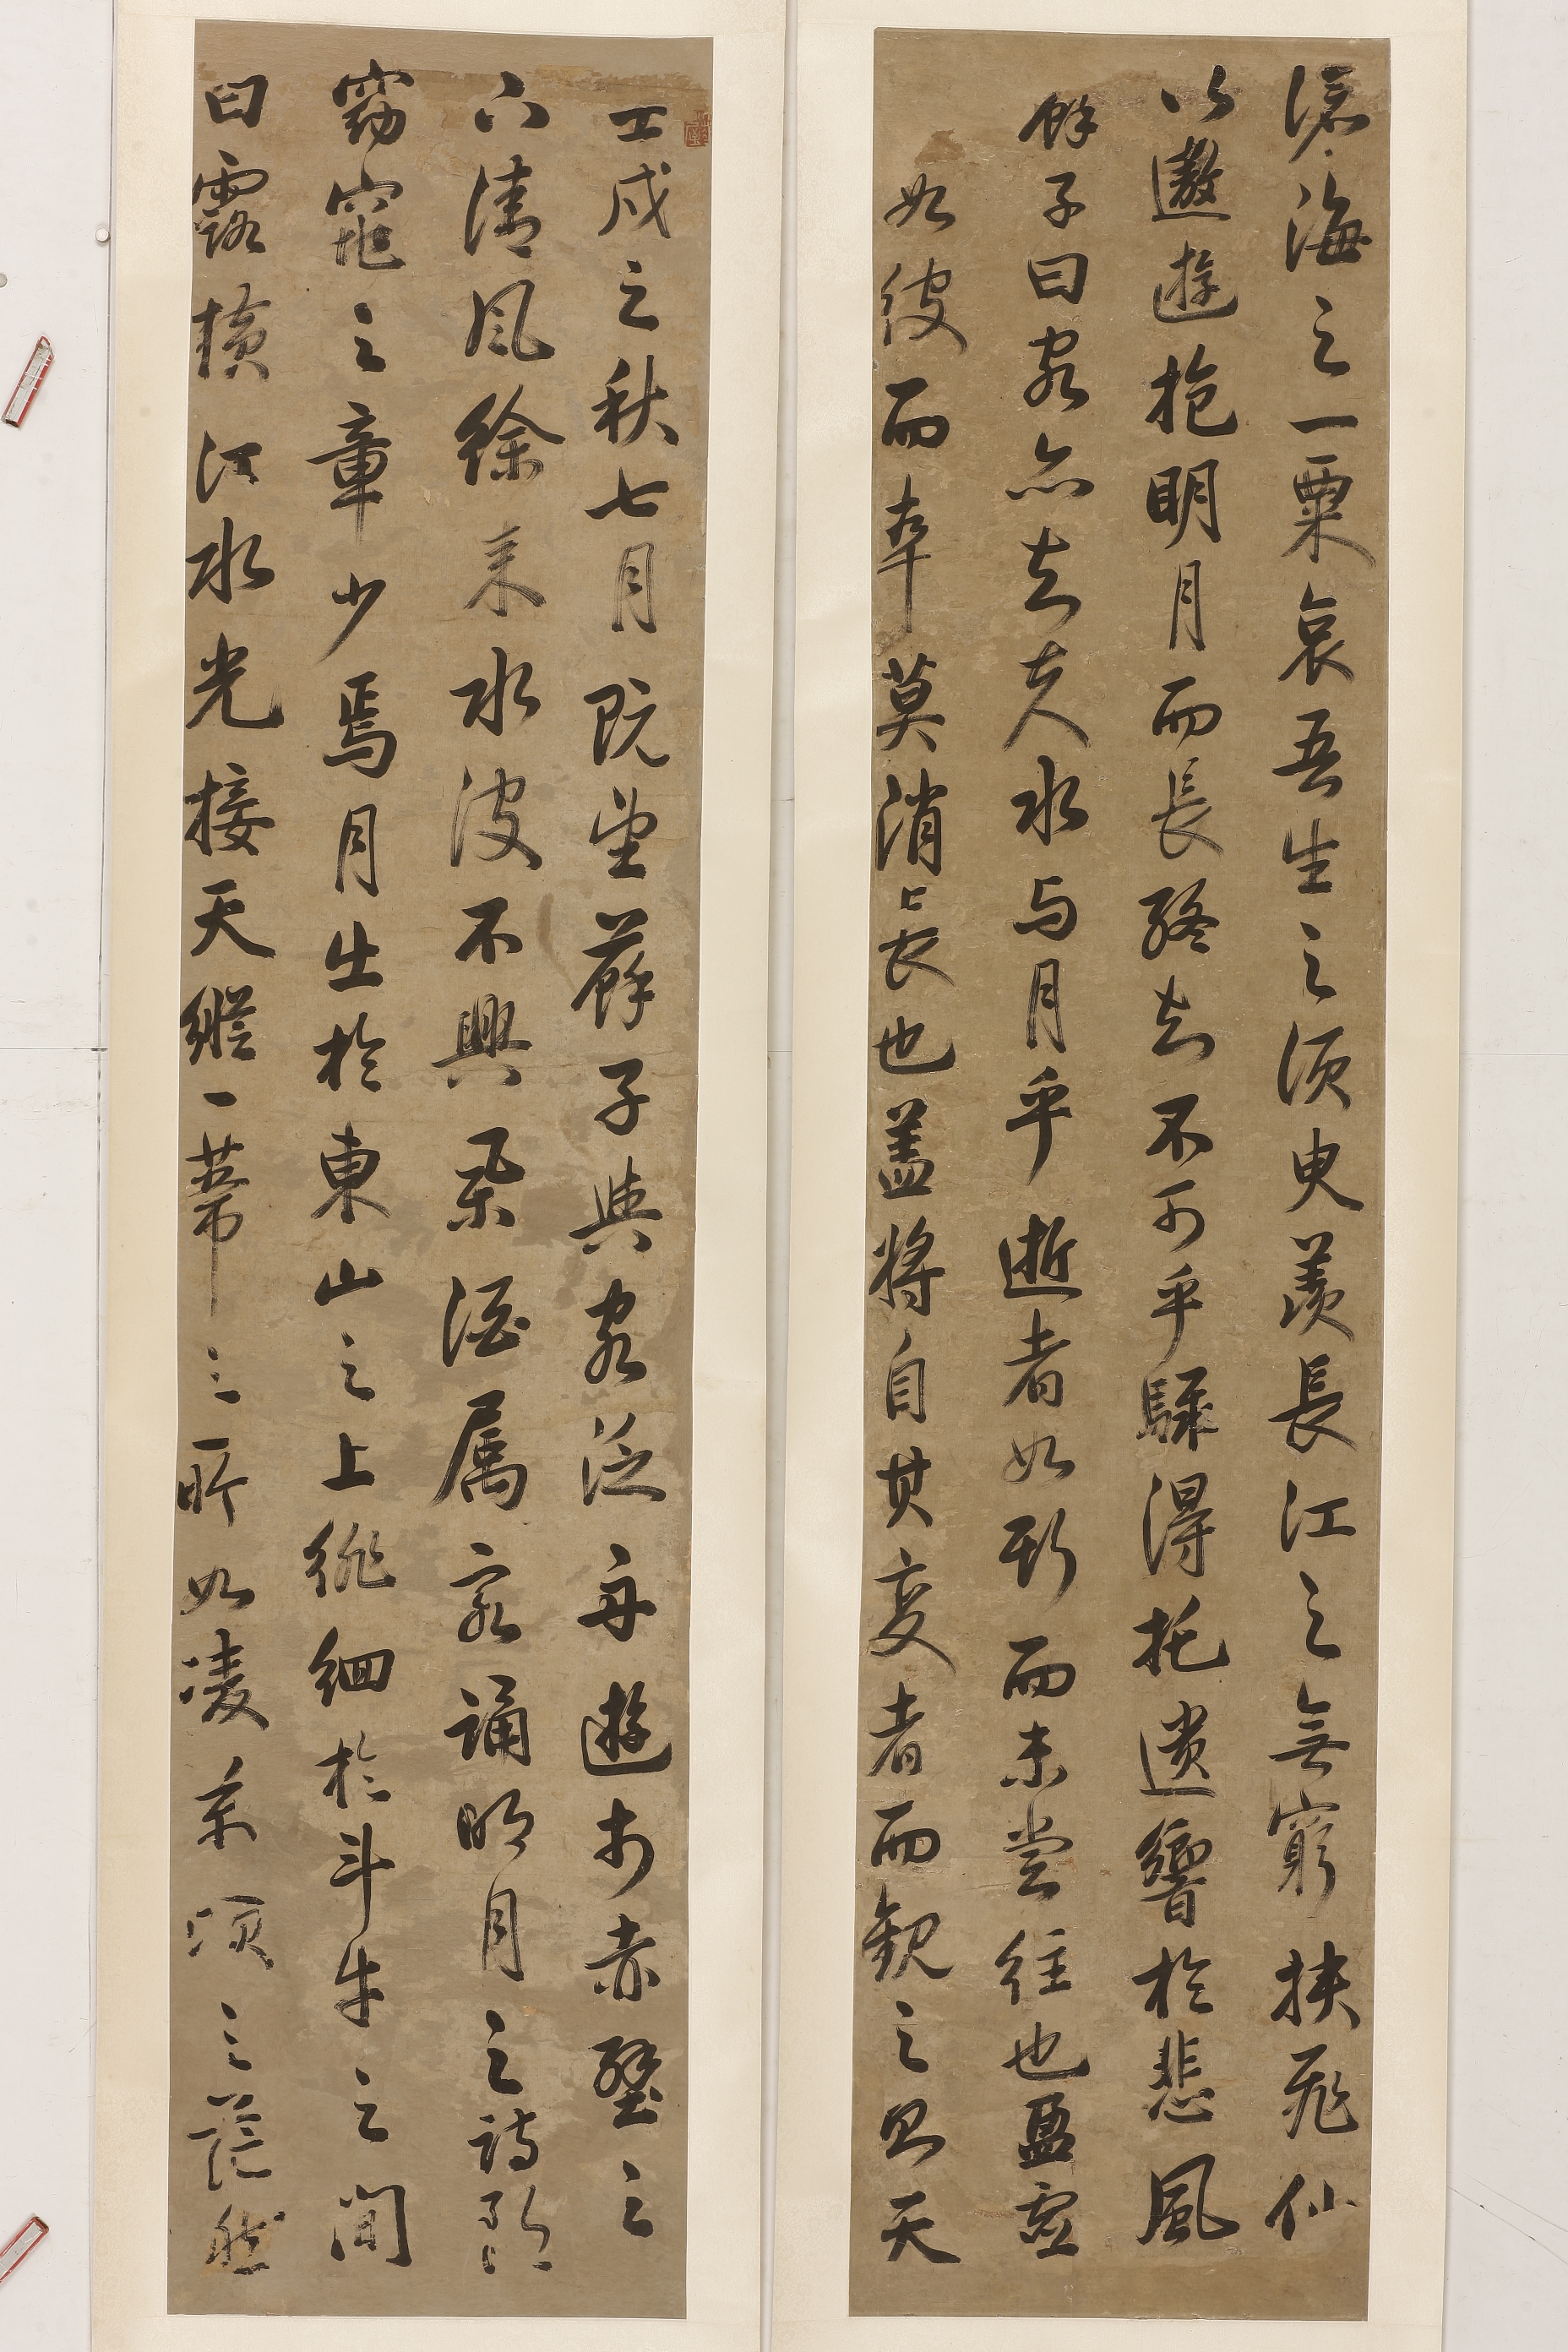 壬戌之秋七月既望蘇子與客泛舟遊於赤壁之
下清風徐來水波不興舉酒屬客誦明月之詩歌
窈窕之章少焉月出於東山之上徘徊於斗牛之間
白露橫江水光接天縱一葦之所如凌萬頃之茫然
滄海之一粟哀吾生之須臾羨長江之無窮挾飛仙
以遨遊抱明月而長終知不可乎驟得托遺響於悲風
蘇子曰客亦知夫水与月乎逝者如斯而未嘗往也盈虛
如彼而卒莫消長也盖將自其變者而觀之則天